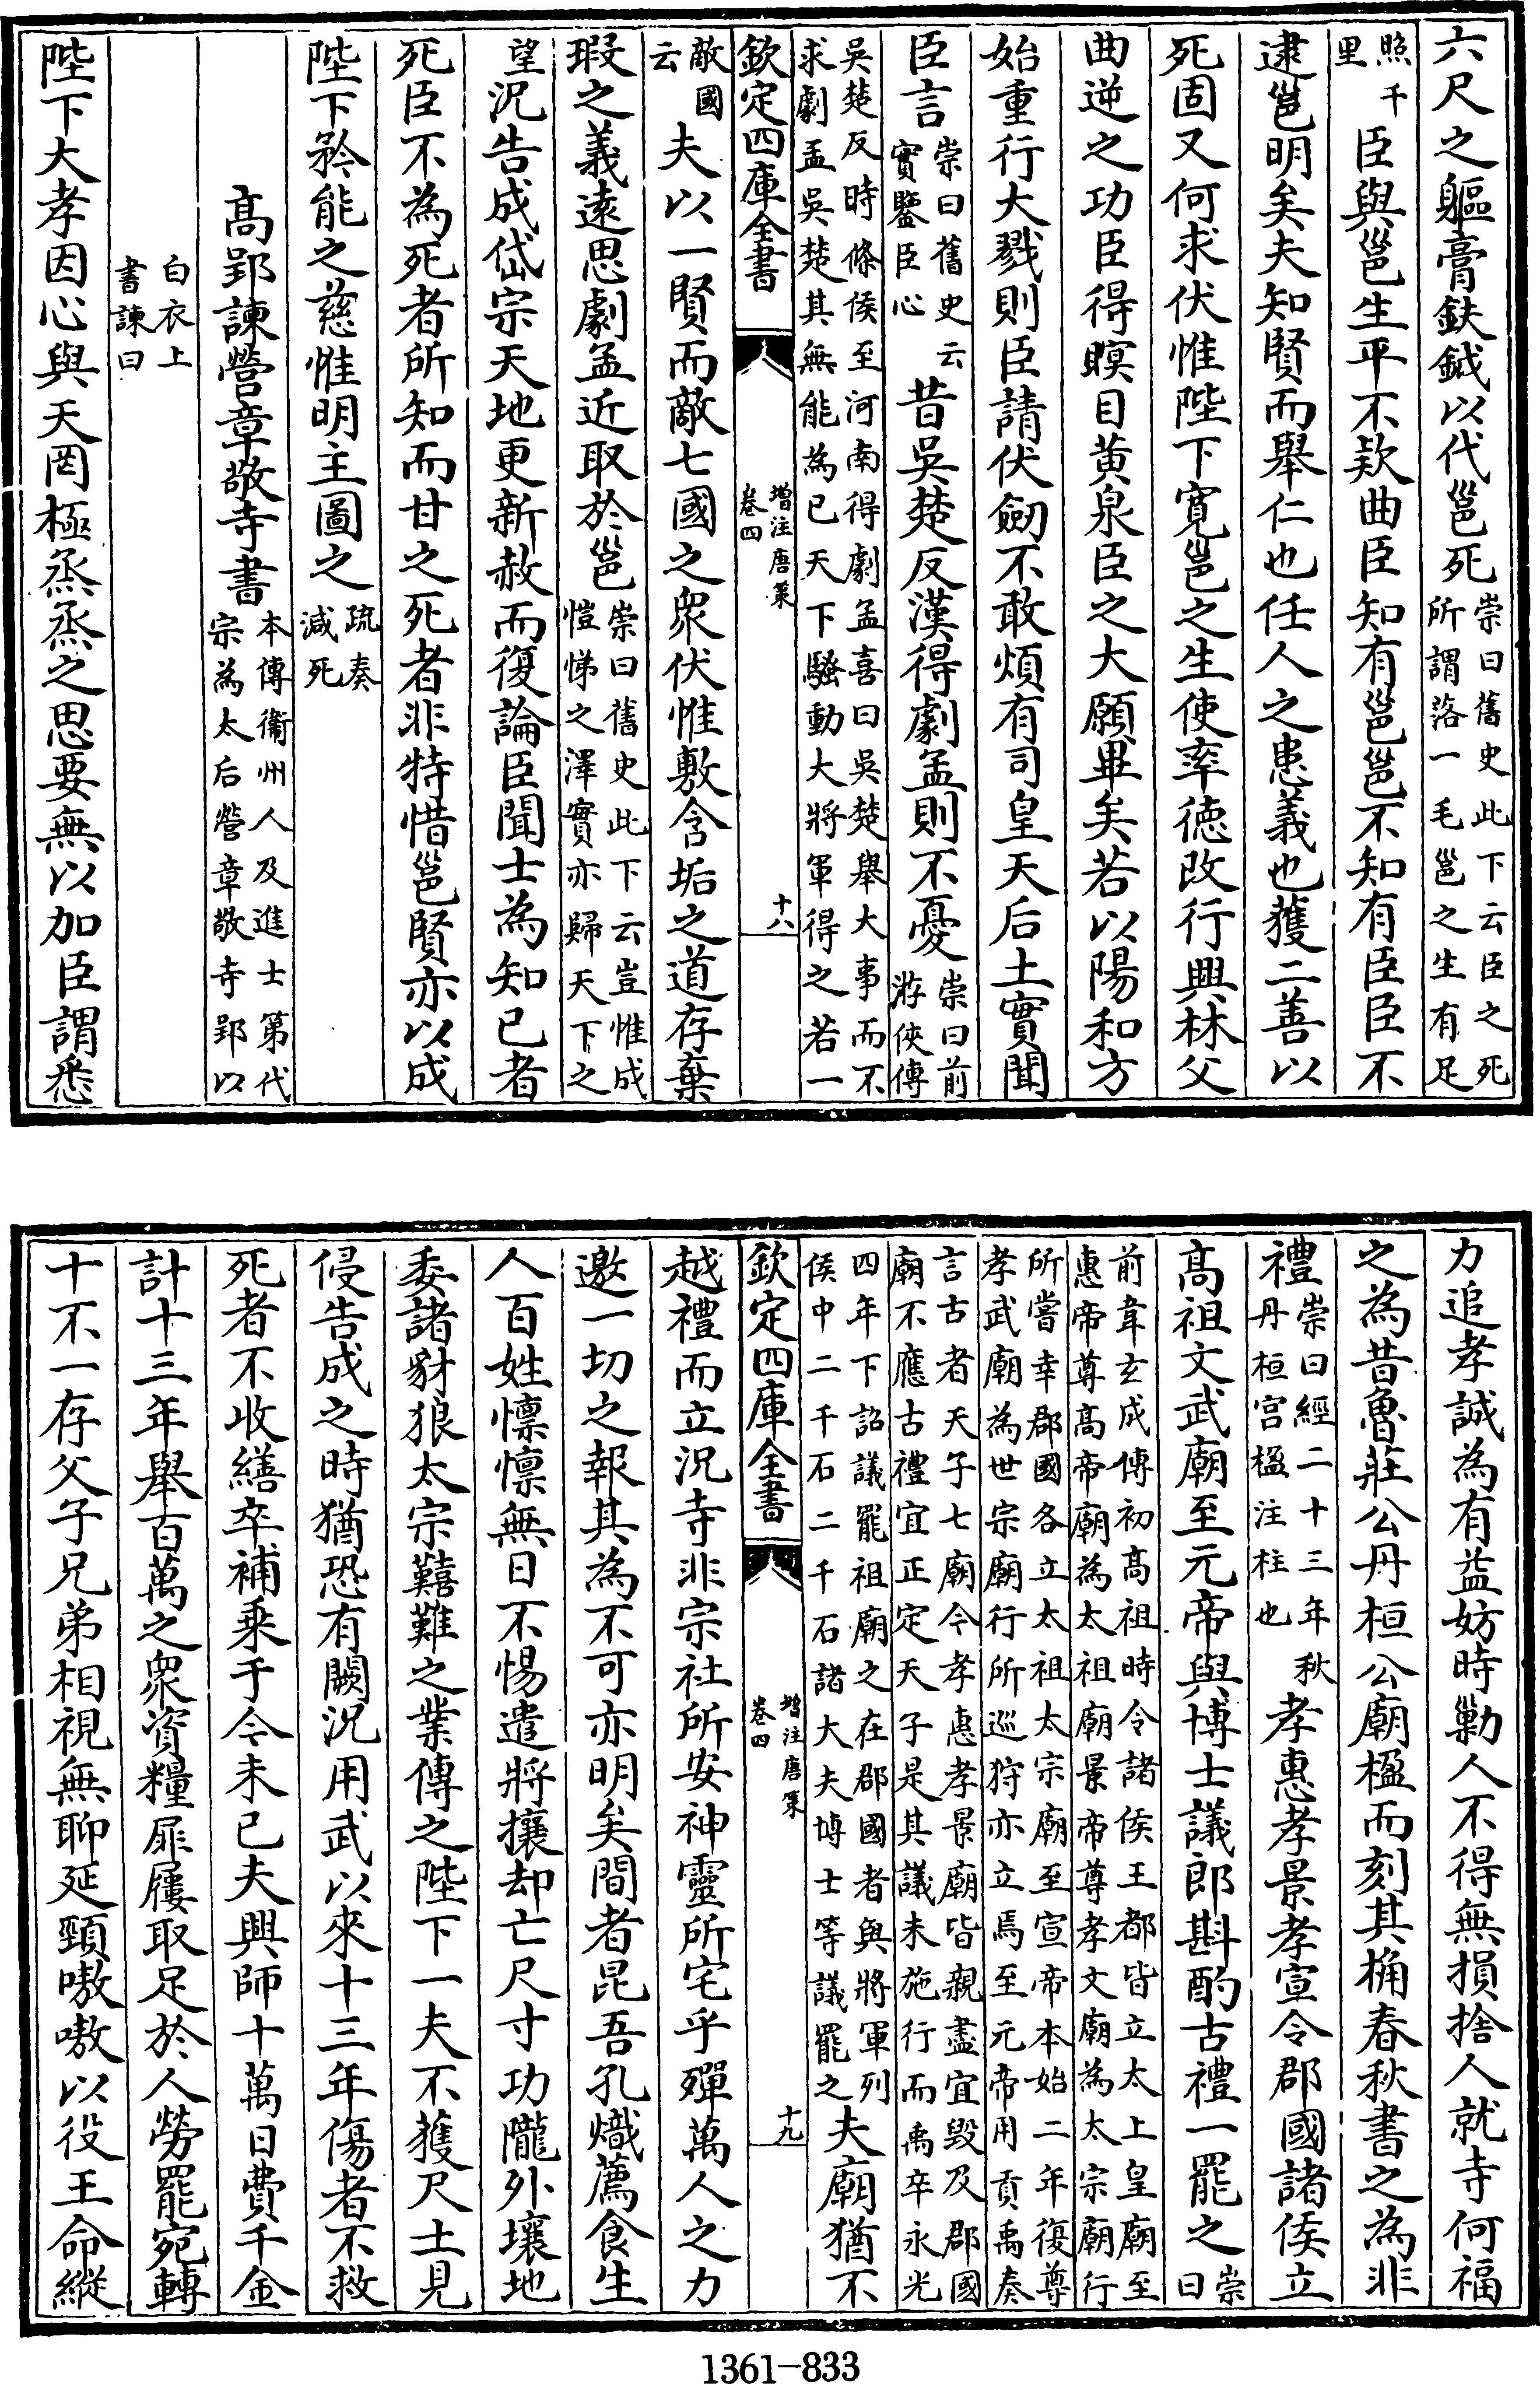 六尺之軀膏鈇鉞以代邕死崇曰舊史此下云臣之死所謂落一毛邕之生有足
照千里臣與邕生平不欵曲臣知有邕邕不知有臣臣不
逮邕明矣夫知賢而舉仁也任人之患義也獲二善以
死固又何求伏惟陛下寛邕之生使率徳改行興林父
曲逆之功臣得瞑目黄泉臣之大願畢矣若以陽和方
始重行大戮則臣請伏劒不敢煩有司皇天后土實聞
臣言崇曰舊史云實鑒臣心昔吳楚反漢得劇孟則不憂崇曰前游俠傳
吳楚反時條侯至河南得劇孟喜曰吳楚舉大事而不求劇孟吳楚其無能為已天下騷動大將軍得之若一
欽定四庫全書 增注唐策 卷四 十八
敵國云夫以一賢而敵七國之衆伏惟敷含垢之道存棄
瑕之義遠思劇孟近取於邕崇曰舊史此下云豈惟成愷悌之澤實亦歸天下之
望況告成岱宗天地更新赦而復論臣聞士為知已者
死臣不為死者所知而甘之死者非特惜邕賢亦以成
陛下矜能之慈惟明主圖之疏奏減死
髙郢諫營章敬寺書本傳衛州人及進士第代宗為太后營章敬寺郢以
白衣上書諫曰
陛下大孝因心與天罔極烝烝之思要無以加臣謂悉
力追孝誠為有益妨時勦人不得無損捨人就寺何福
之為昔魯莊公丹桓公廟楹而刻其桷春秋書之為非
禮崇曰經二十三年秋丹桓宫楹注柱也孝惠孝景孝宣令郡國諸侯立
髙祖文武廟至元帝與博士議郎斟酌古禮一罷之崇曰
前韋玄成傳初髙祖時令諸侯王都皆立太上皇廟至惠帝尊髙帝廟為太祖廟景帝尊孝文廟為太宗廟行
所嘗幸郡國各立太祖太宗廟至宣帝本始二年復尊孝武廟為世宗廟行所巡狩亦立焉至元帝用貢禹奏
言古者天子七廟今孝惠孝景廟皆親盡宜毁及郡國廟不應古禮宜正定天子是其議未施行而禹卒永光
四年下詔議罷祖廟之在郡國者與將軍列侯中二千石二千石諸大夫博士等議罷之夫廟猶不
欽定四庫全書 增注唐策 卷四 十九
越禮而立況寺非宗社所安神靈所宅乎殫萬人之力
邀一切之報其為不可亦明矣間者昆吾孔熾薦食生
人百姓懍懍無日不惕遣將攘却亡尺寸功隴外壤地
委諸豺狼太宗囏難之業傳之陛下一夫不獲尺土見
侵告成之時猶恐有闕況用武以來十三年傷者不救
死者不收繕卒補乘于今未已夫興師十萬日費千金
計十三年舉百萬之衆資糧屝屨取足於人勞罷宛轉
十不一存父子兄弟相視無聊延頸嗷嗷以役王命縱
1361-833